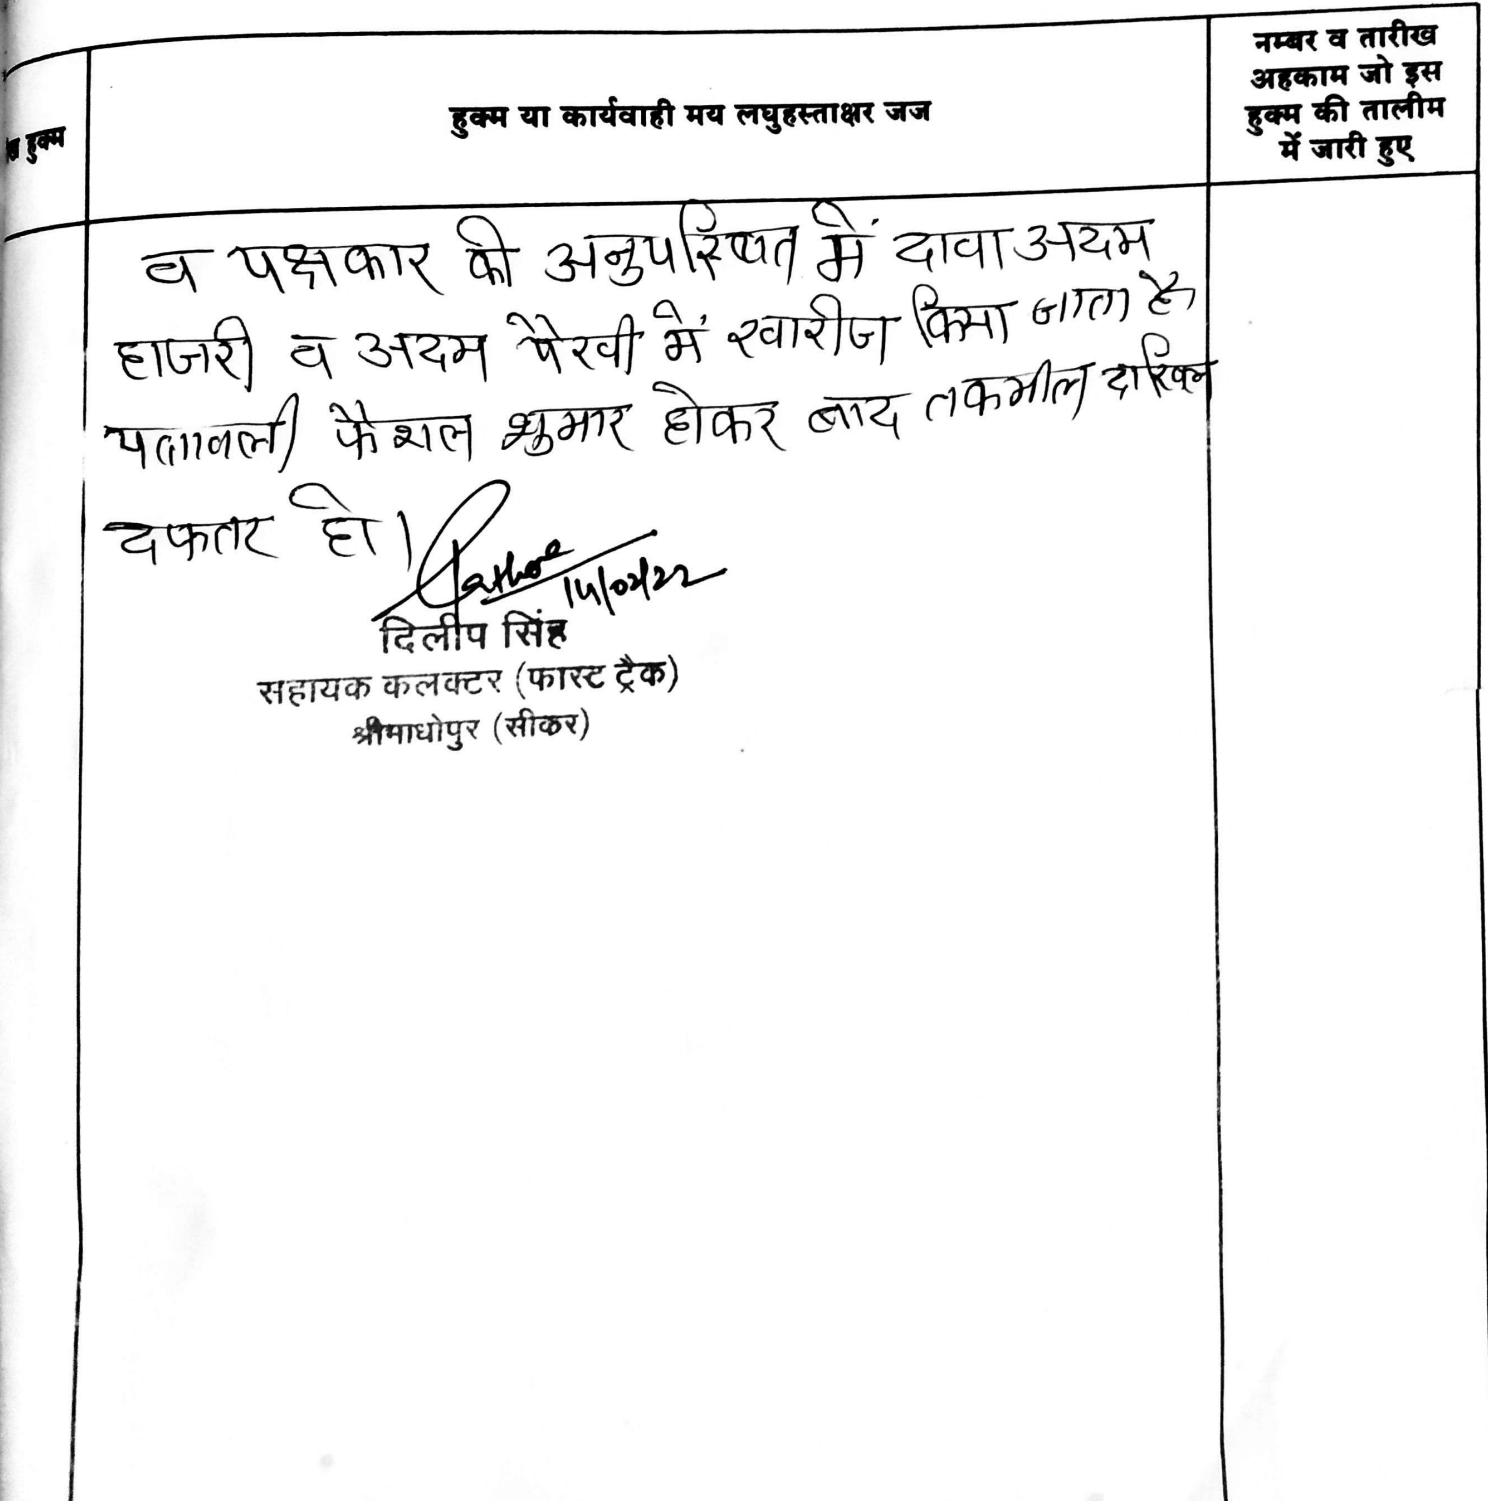 हुक्म
हुक्म या कार्यवाही मय लघुहस्ताक्षर जज
नम्बर व तारीख
अहकाम जो इस
हुक्म की तालीम
में जारी हुए
व पक्षकार की अनुपस्थित में दावा अदम
हाजरी व अदम पैरवी में खारीज किया जाता है,
पत्रावली फैशल शुमार होकर बाद तकमील दाखिल
दफतर हो।
14/02/22
दिलीप सिंह
सहायक कलक्टर (फास्ट ट्रैक)
श्रीमाधोपुर (सीकर)